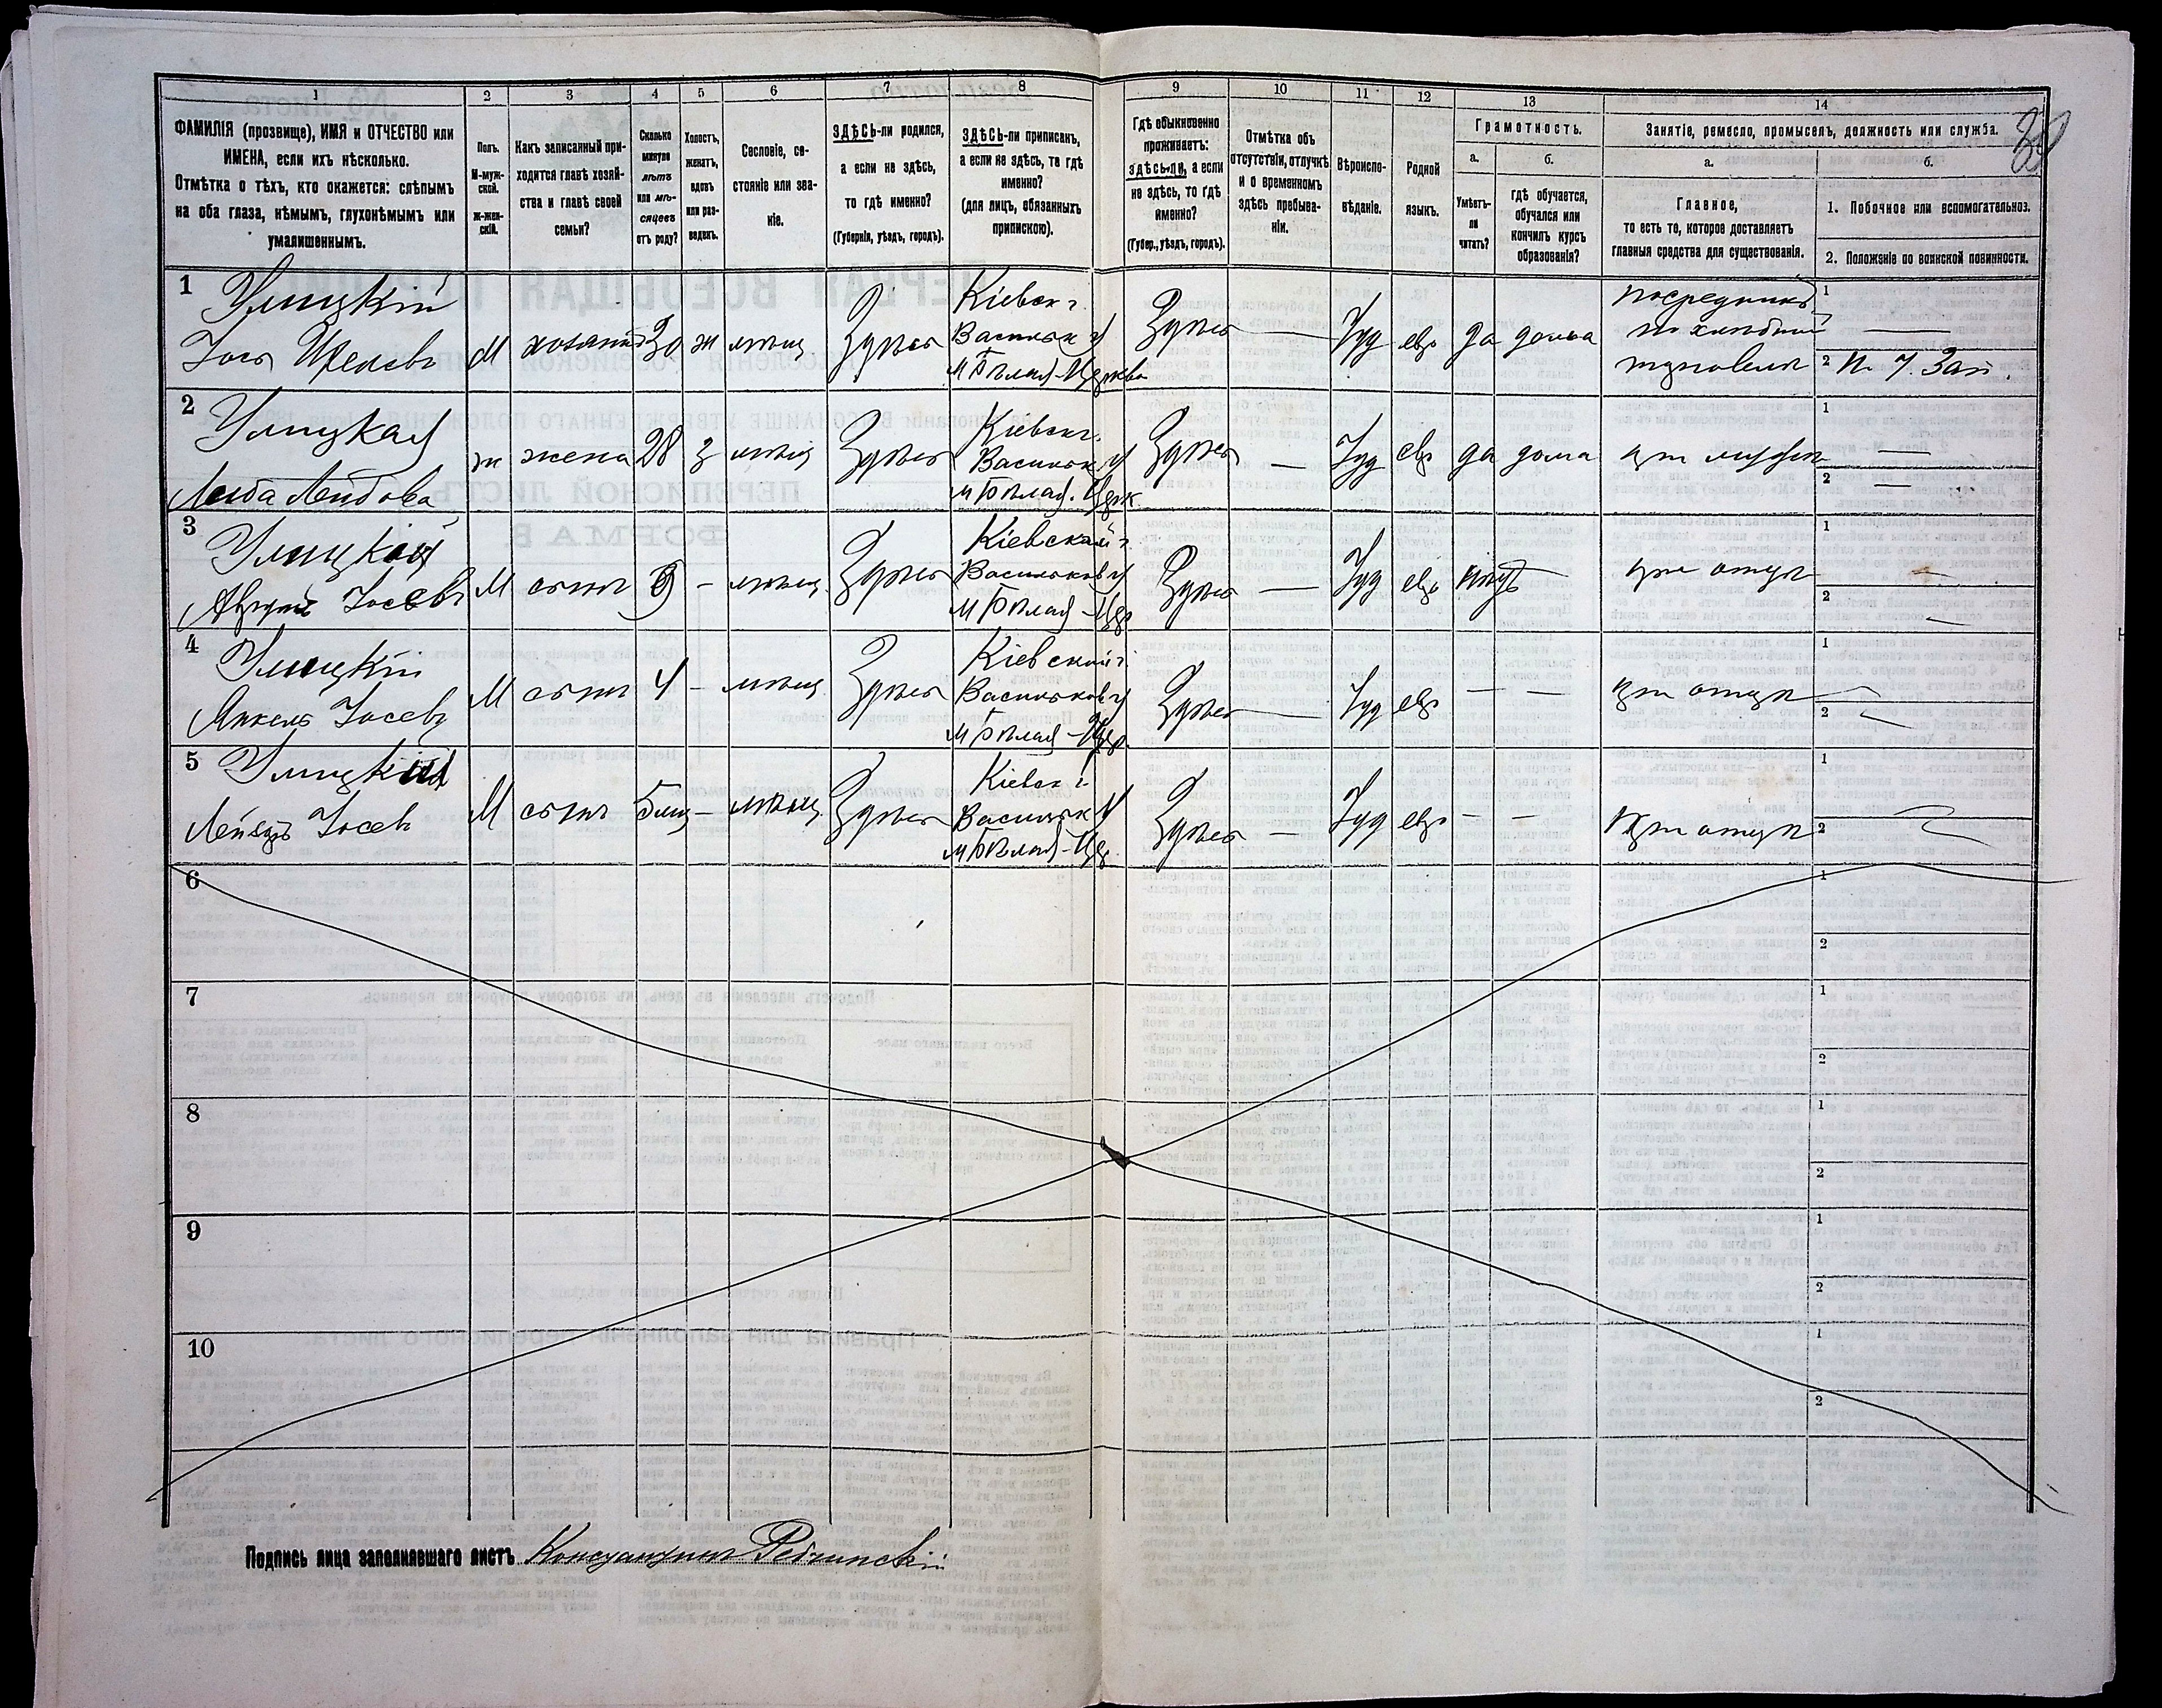 1 2 3 4 5 6 7 8 9 10 11 12 13 14
39
ФАМИЛІЯ (прозвище), ИМЯ и ОТЧЕСТВО или
ИМЕНА, если ихъ нѣсколько.
Отмѣтка о тѣхъ, кто окажется: слѣпымъ
на оба глаза, нѣмымъ, глухонѣмымъ или
умалишеннымъ.
Полъ.
М-муж-
ской.
Ж-жен-
скій.
Какъ записанный при-
ходится главѣ хозяй-
ства и главѣ своей
семьи?
Сколько
минуло
лѣтъ
или мѣ-
сяцевъ
отъ роду?
Холостъ,
женатъ,
вдовъ
или раз-
веденъ.
Сословіе, со-
стояніе или зва-
ніе.
ЗДѢСЬ-ли родился,
а если не здѣсь,
то гдѣ именно?
(Губернія, уѣздъ, городъ).
ЗДѢСЬ-ли приписанъ,
а если не здѣсь, то гдѣ
именно?
(для лицъ, обязанныхъ
припискою).
Гдѣ обыкновенно
проживаетъ:
здѣсь-ли, а если
не здѣсь, то гдѣ
именно?
(Губер., уѣздъ, городъ).
Отмѣтка объ
отсутствіи, отлучкѣ
и о временномъ
здѣсь пребыва-
ніи.
Вѣроиспо-
вѣданіе.
Родной
языкъ.
Грамотность.
а.
Умѣетъ-
ли
читать?
б.
гдѣ обучается,
обучался или
кончилъ курсъ
образованія?
Занятіе, ремесло, промыселъ, должность или служба.
а.
Главное,
то есть то, которое доставляетъ
главныя средства для существованія.
б.
1. Побочное или вспомогательное.
2. Положеніе по воинской повинности.
1 Улицкій
Іось М хозяинъ 30 ж мѣщ Здѣсь
Кіевск г.
Васильк у
м Бѣлая-Церковь
Здѣсь — Іуд евр да дома
посредникъ
по хлѣбной
торговли
1 —
2 Зап.
2 Улицкая
Лейбова ж жена 28 з мѣщ Здѣсь
Кіевск г.
Васильк у
м Бѣлая. Церк.
Здѣсь — Іуд евр да дома при мужѣ
1 —
2 —
3 Улицкій
Іосевъ М сынъ 9 - мѣщ Здѣсь
Кіевской г
Васильков у
м Бѣлая-Цер
Здѣсь — Іуд евр нѣтъ — при отцѣ
1 —
2 —
4 Улицкій
Янкель Іосевъ М сынъ 4 - мѣщ Здѣсь
Кіевской г
Васильков у
м Бѣлая-Цер.
Здѣсь — Іуд евр — — при отцѣ
1 —
2 —
5 Улицкій
Лейзеръ Іосев М сынъ 5 мѣщ Здѣсь
Кіевск г
Васильк у
м Бѣлая-Цер.
Здѣсь — Іуд евр — — при отцѣ
1
2
6
1
2
7
1
2
8
1
2
9
1
2
10
1
2
Подпись лица заполнявшаго листъ Константинъ